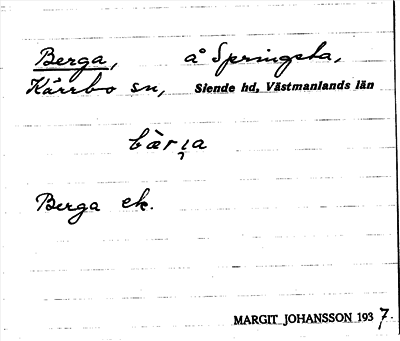 Berga, å Springsta,
Kärrbo sn, Siende hd, Västmanlands län
bàrı̣a
Berga ek.
MARGIT JOHANSSON 1937.